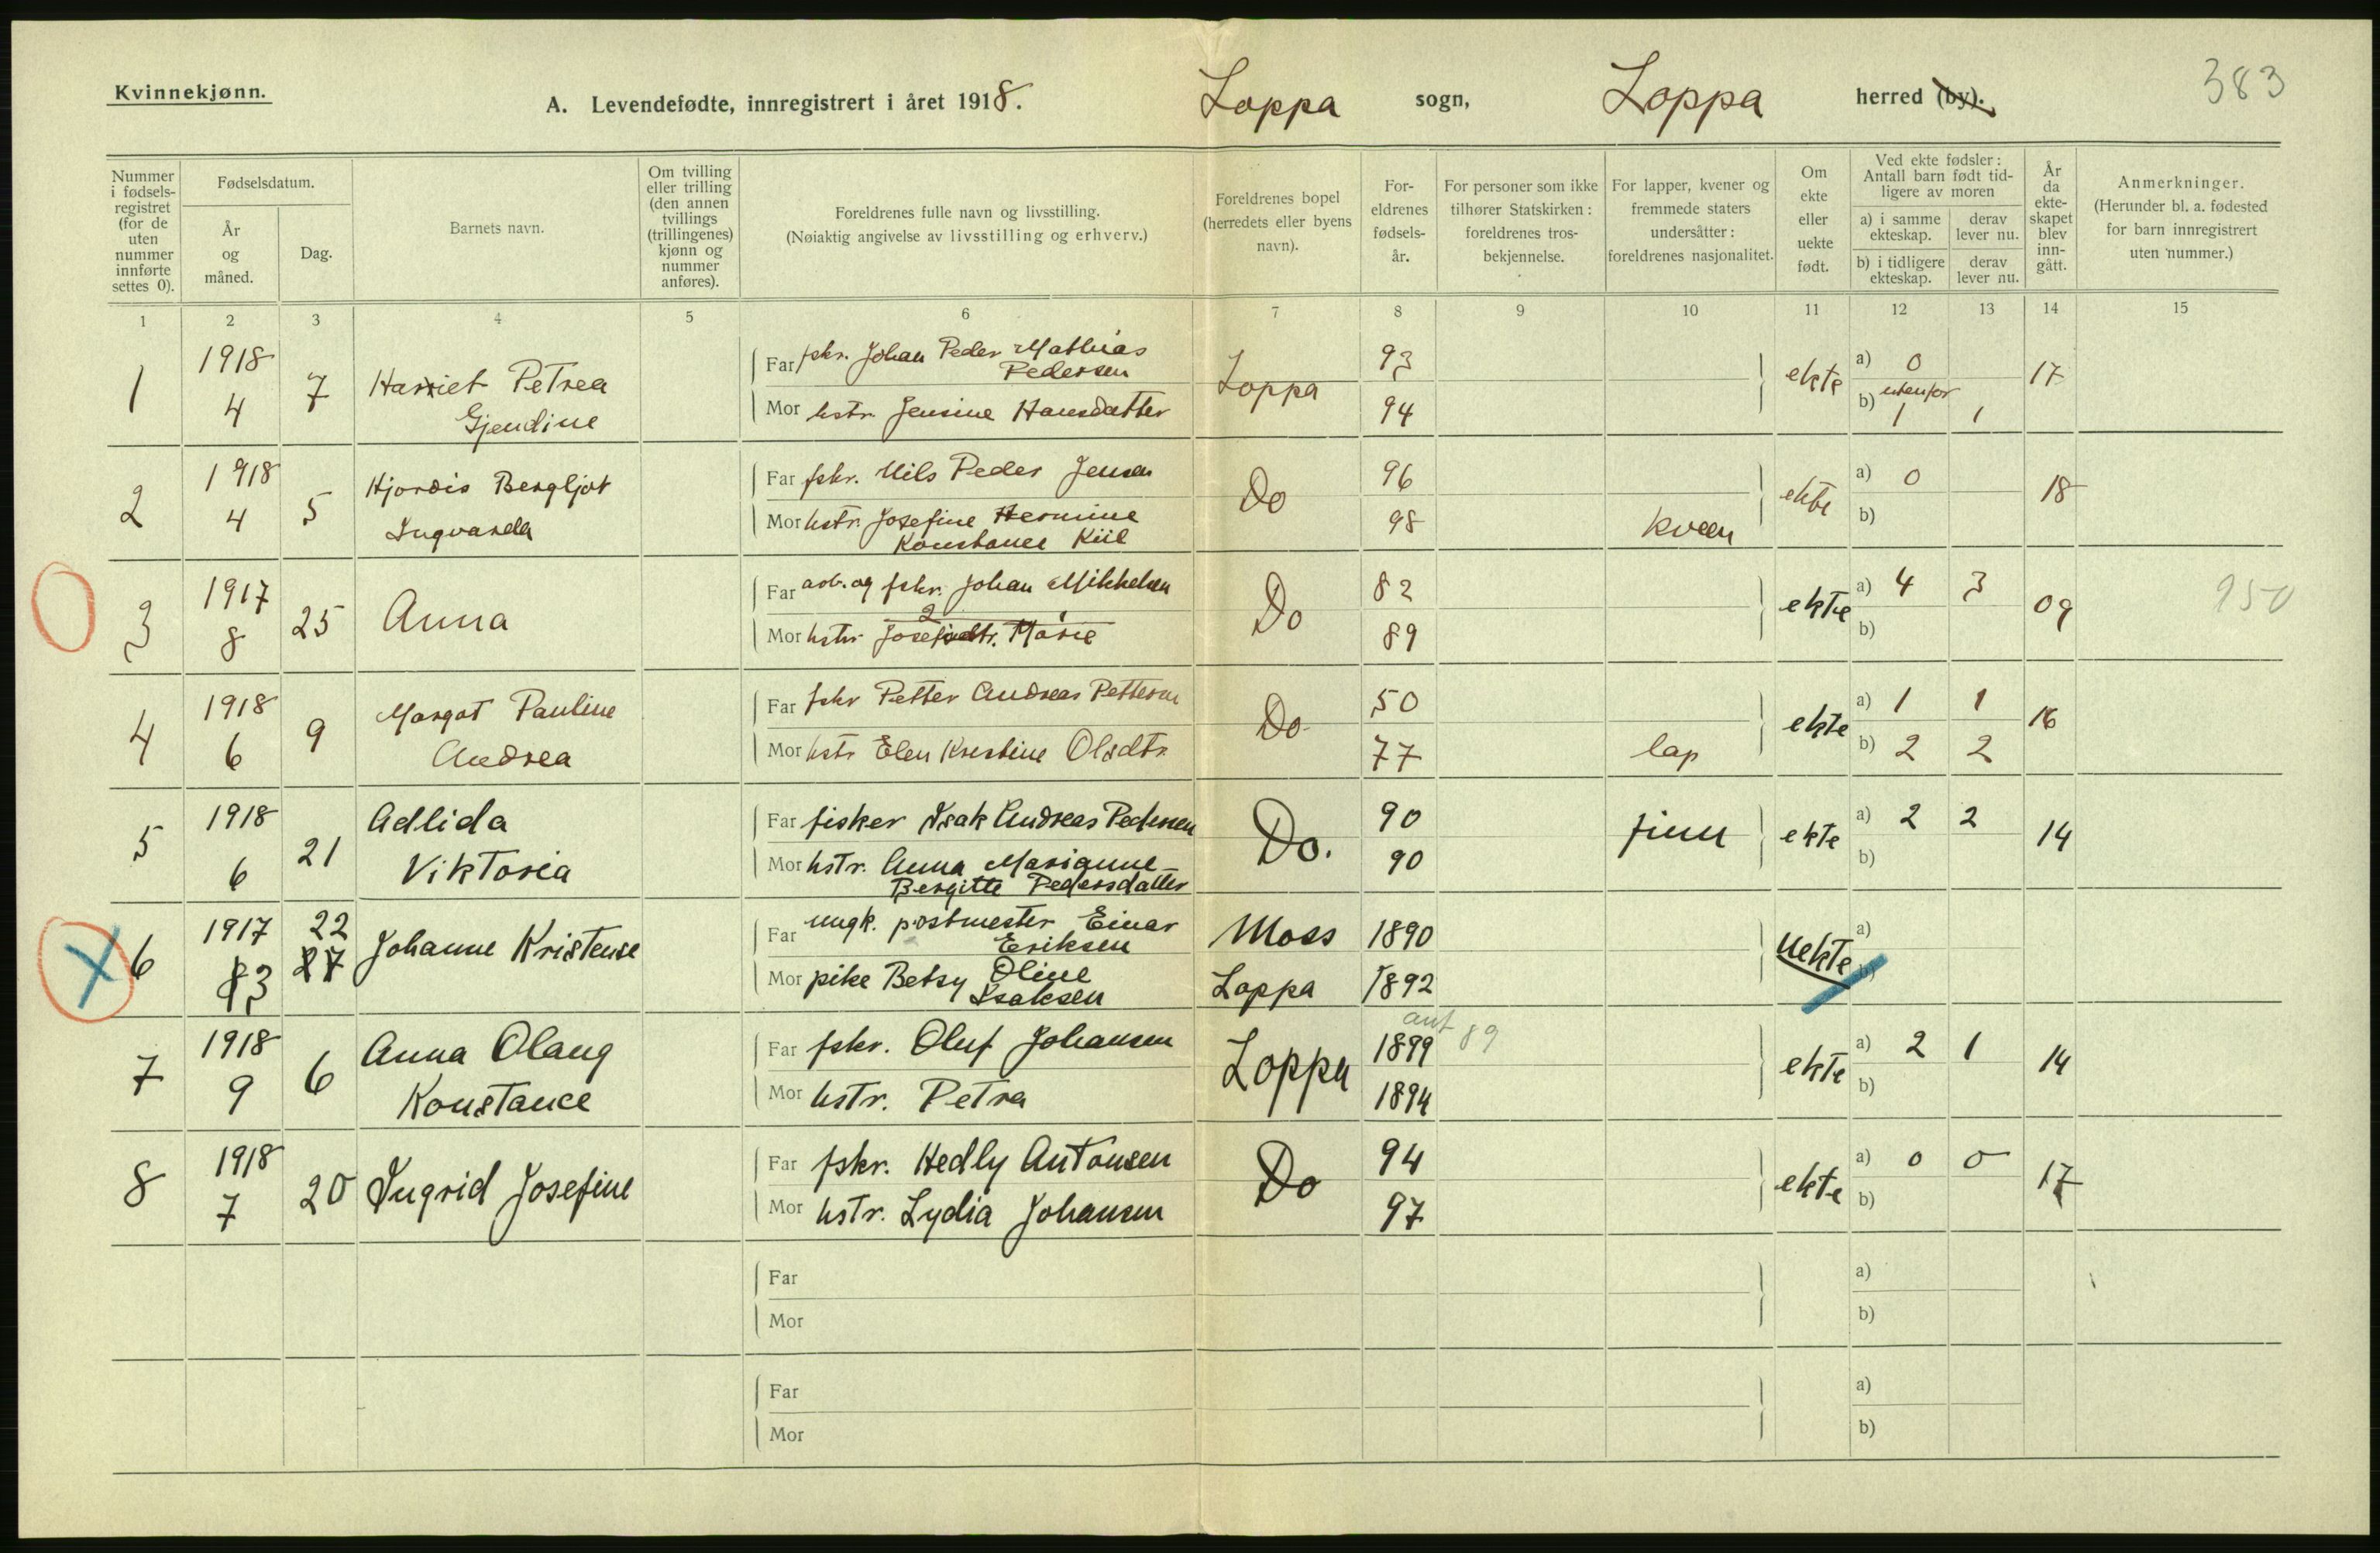 Kvinnekjønn.
A. Levendefødte, innregistrert i året 1918.
Loppa sogn, Loppa herred (by).
383
Nummer i fødselsregistret (for de uten nummer innførte settes 0).
Fødselsdatum.
År og måned.
Dag.
Barnets navn.
Om tvilling eller trilling (den annen tvillings (trillingenes) kjønn og nummer anføres).
Foreldrenes fulle navn og livsstilling.
(Nøiaktig angivelse av livsstilling og erhverv.)
Foreldrenes bopel (herredets eller byens navn).
Foreldrenes fødselsår.
For personer som ikke tilhører Statskirken: foreldrenes trosbekjennelse.
For lapper, kvener og fremmede staters undersåtter: foreldrenes nasjonalitet.
Om ekte eller uekte født.
Ved ekte fødsler: Antall barn født tidligere av moren
a) i samme ekteskap.
derav lever nu.
b) i tidligere ekteskap.
derav lever nu.
År da ekteskapet blev inngått.
Anmerkninger.
(Herunder bl. a. fødested for barn innregistrert uten nummer.)
1 2 3 4 5 6 7 8 9 10 11 12 13 14 15
1 1918 4 7 Harriet Petrea Gjendine
Far fskr. Johan Peder Mathias Pedersen Loppa 93 ekte a) 0 17
Mor hstr. Jensine Hansdatter 94 b) utenfor 1 1
2 1918 4 5 Hjordis Bergljot Ingvarda
Far fskr. Nils Peder Jensen Do 96 ekte a) 0 18
Mor hstr. Josefine Hermine Konstance Kiil 98 kveen b)
3 1917 8 25 Anna
Far arb. og fskr. Johan Mikkelsen Do 82 ekte a) 4 3 09 950
2
Mor hstr Josefsdtr. Marie 89 b)
4 1918 6 9 Margot Pauline Andrea
Far fskr Petter Andreas Petterson Do 50 ekte a) 1 1 16
Mor hstr Elen Kristine Olsdtr 77 lap b) 2 2
5 1918 6 21 Adlida Viktoria
Far fisker Isak Andreas Pedersen Do. 90 finn ekte a) 2 2 14
Mor hstr. Anna Marianne Bergitte Pedersdatter 90 b)
6 1917 3 22 27 Johanne Kristense
Far ungk. postmester Einar Eriksen Moss 1890 uekte a)
Mor pike Betsy Oline Isaksen Loppa 1892 b)
7 1918 9 6 Anna Olaug Konstance
ant 89
Far fskr. Oluf Johansen Loppa 1899 ekte a) 2 1 14
Mor hstr. Petra 1894 b)
8 1918 7 20 Ingrid Josefine
Far fskr. Hedly Antonsen Do 94 ekte a) 0 0 17
Mor hstr. Lydia Johansen 97 b)
Far a)
Mor b)
Far a)
Mor b)